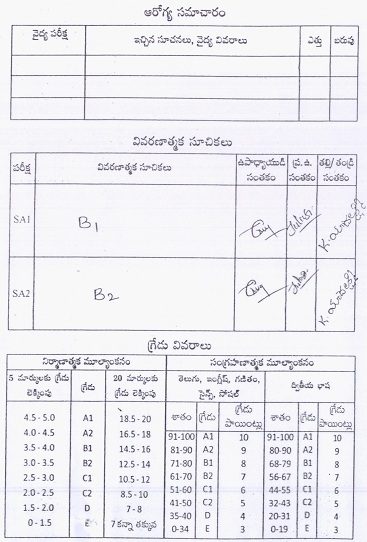 ఆరోగ్య సమాచారం
వైద్య పరీక్ష ఇచ్చిన సూచనలు, వైద్య వివరాలు ఎత్తు బరువు
వివరణాత్మక సూచికలు
పరీక్ష వివరణాత్మక సూచికలు ఉపాధ్యాయుడి సంతకం ప్ర.ఉ. సంతకం తల్లి/ తండ్రి సంతకం
SA1 B1
SA2 B2
గ్రేడు వివరాలు
నిర్మాణాత్మక మూల్యాంకనం సంగ్రహణాత్మక మూల్యాంకనం
5 మార్కులకు గ్రేడు లెక్కింపు గ్రేడు 20 మార్కులకు గ్రేడు లెక్కింపు తెలుగు, ఇంగ్లీష్, గణితం, సైన్స్, సోషల్ ద్వితీయ భాష
శాతం గ్రేడు గ్రేడు పాయింట్లు శాతం గ్రేడు గ్రేడు పాయింట్లు
4.5 - 5.0 A1 18.5 - 20 91-100 A1 10 91-100 A1 10
4.0 - 4.5 A2 16.5 - 18 81-90 A2 9 80-90 A2 9
3.5 - 4.0 B1 14.5 - 16 71-80 B1 8 68-79 B1 8
3.0 - 3.5 B2 12.5 - 14 61-70 B2 7 56-67 B2 7
2.5 - 3.0 C1 10.5 - 12 51-60 C1 6 44-55 C1 6
2.0 - 2.5 C2 8.5 - 10 41-50 C2 5 32-43 C2 5
1.5 - 2.0 D 7 - 8 35-40 D 4 20-31 D 4
0 - 1.5 E 7 కన్నా తక్కువ 0-34 E 3 0-19 E 3